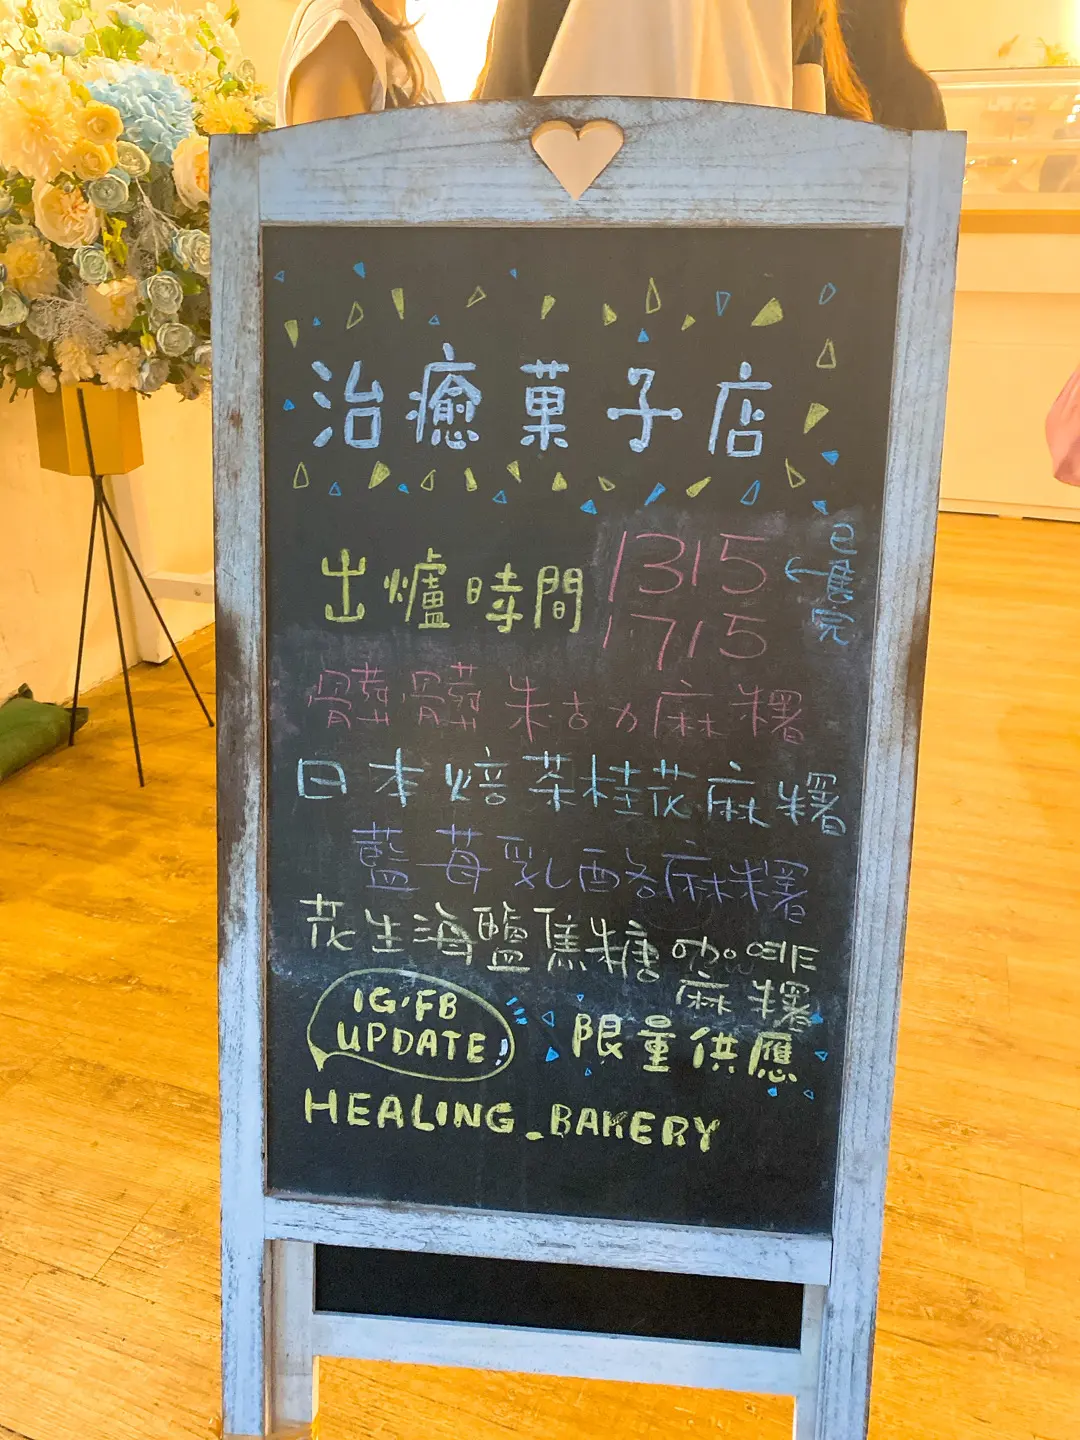 治癒菓子店
出爐時間 1315 ← 已售完
1715
髒髒朱古力麻糬
日本焙茶桂花麻糬
藍莓乳酪麻糬
花生海鹽焦糖咖啡
麻糬
IG,FB
UPDATE!
限量供應
HEALING_BAKERY